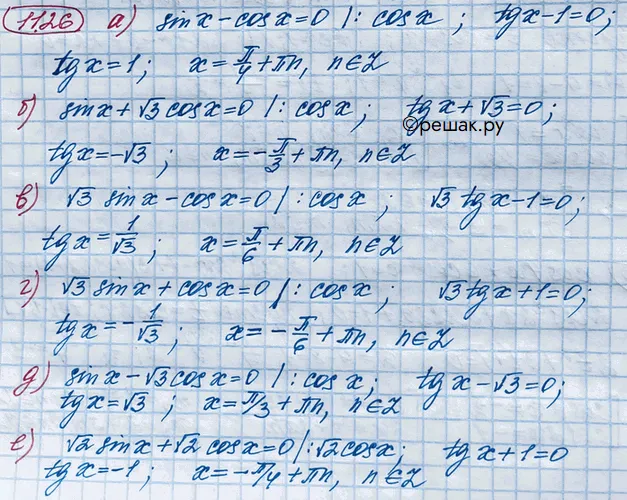 11.26 а) sin x - cos x = 0 |: cos x ; tg x - 1 = 0;
tg x = 1; x = π/4 + πn, n ∈ Z
б) sin x + √3 cos x = 0 |: cos x ; tg x + √3 = 0;
©решак.ру
tg x = -√3 ; x = -π/3 + πn, n ∈ Z
в) √3 sin x - cos x = 0 |: cos x ; √3 tg x - 1 = 0;
tg x = 1/√3 ; x = π/6 + πn, n ∈ Z
г) √3 sin x + cos x = 0 |: cos x ; √3 tg x + 1 = 0;
tg x = -1/√3 ; x = -π/6 + πn, n ∈ Z
д) sin x - √3 cos x = 0 |: cos x; tg x - √3 = 0;
tg x = √3 ; x = π/3 + πn, n ∈ Z
е) √2 sin x + √2 cos x = 0 |: √2 cos x; tg x + 1 = 0
tg x = -1; x = -π/4 + πn, n ∈ Z